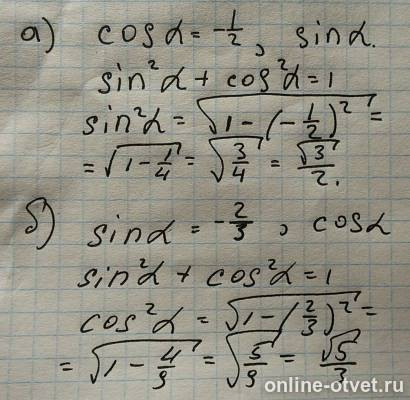 а) cos α = -1/2, sin α.
sin²α + cos²α = 1
sin²α = √(1 - (-1/2)²) =
= √(1 - 1/4) = √(3/4) = √3/2.
б) sin α = -2/3, cos α
sin²α + cos²α = 1
cos²α = √(1 - (2/3)²) =
= √(1 - 4/9) = √(5/9) = √5/3
online-otvet.ru